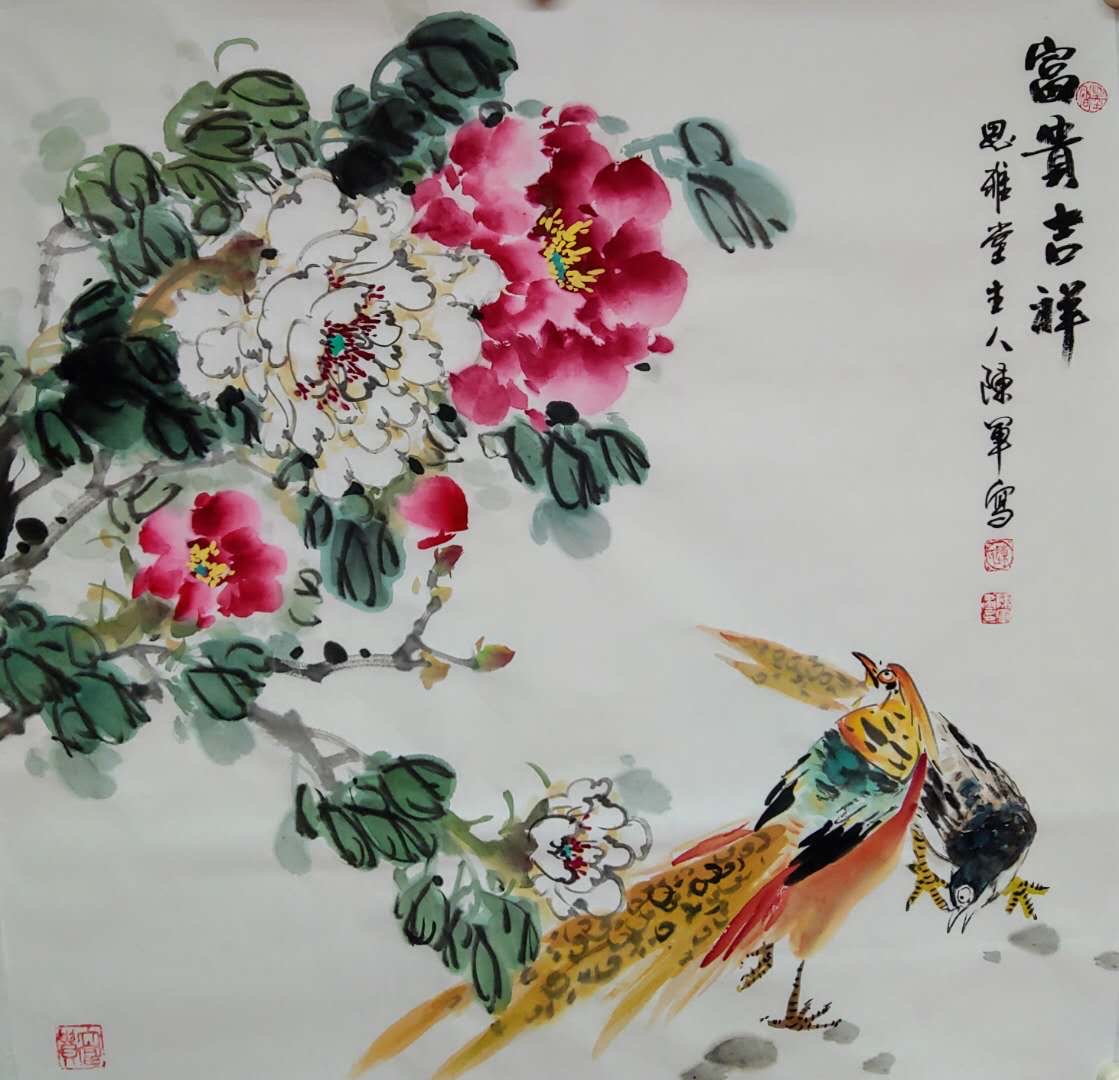 富貴吉祥
思雅堂主人陳軍寫